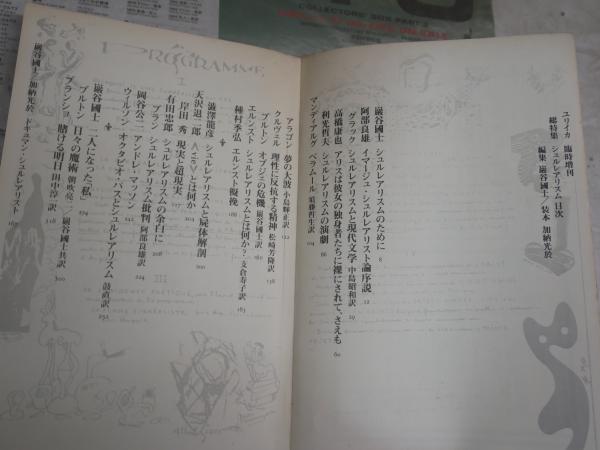 ユリイカ 臨時増刊
総特集 シュルレアリスム 目次
編集 巖谷國士／装本 加納光於
巖谷國士 シュルレアリスムのために 8
阿部良雄 イマージュ・シュルレアリスト論序説 12
グラック シュルレアリスムと現代文学 中島昭和訳 29
高橋康也 アリスは彼女の独身者たちに裸にされて、さえも 60
利光哲夫 シュルレアリスムの演劇 86
マンディアルグ ベラ・ムール 須藤哲生訳 104
PROGRAMME
I
アラゴン 夢の大波 小島輝正訳 122
クルヴェル 理性に反抗する精神 松崎芳隆訳 138
ブルトン オブジェの危機 巖谷國士訳 160
エルンスト シュルレアリスムとは何か? 支倉寿子訳 163
種村季弘 エルンスト擬挽 188
澁澤龍彦 シュルレアリスムと屍体解剖 200
天沢退二郎
岸田秀 現実と超現実
有田忠郎 シュルレアリスムの余白に 208
ブラン シュルレアリスム批判 阿部良雄訳 224
岡谷公二 アンドレ・マッソン
ウィルソン オクタビオ・パスとシュルレアリスム 鼓直訳 252
巖谷國士 二人になった「私」 274
ブルトン 日々の魔術 朝吹亮二／巖谷國士共訳
ブランショ 賭ける明日 田中淳一訳 318
巖谷國士／加納光於 ドキュマン・シュルレアリスト
COLLECTORS' BOX PART 2